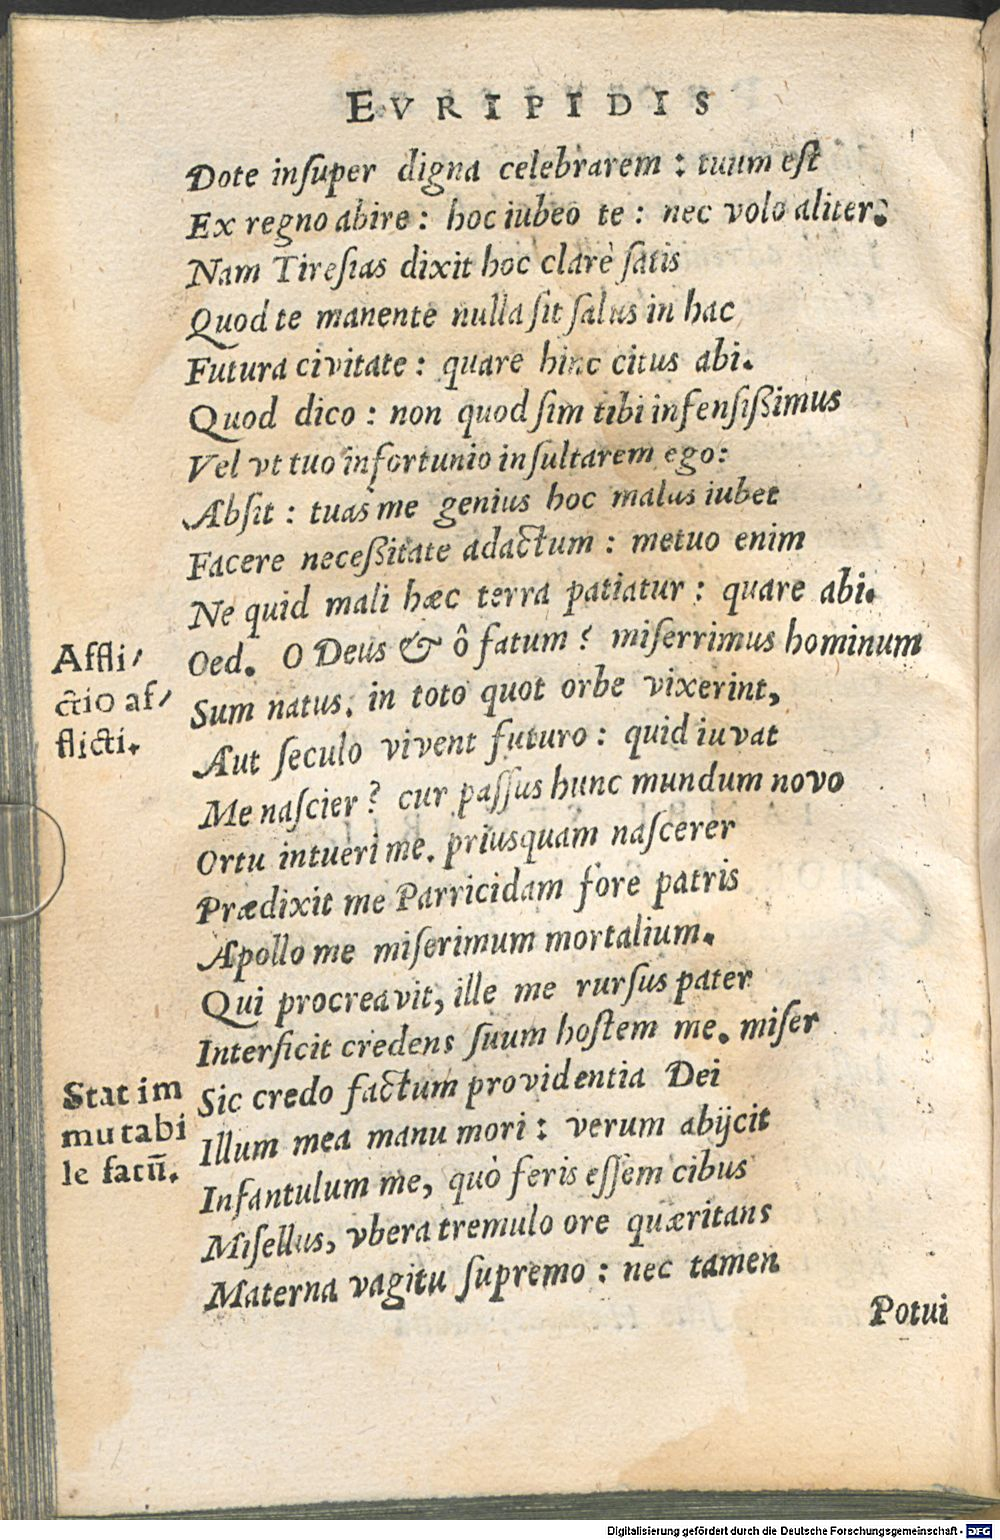 EVRIPIDIS
Dote inſuper digna celebrarem : tuum eſt
Ex regno abire : hoc iubeo te : nec volo aliter.
Nam Tireſias dixit hoc clarè ſatis
Quod te manente nulla ſit ſalus in hac
Futura civitate : quare hinc citus abi.
Quod dico : non quod ſim tibi infenſiſſimus
Vel vt tuo infortunio inſultarem ego:
Abſit : tuas me genius hoc malus iubet
Facere neceſſitate adactum : metuo enim
Ne quid mali hæc terra patiatur : quare abi.
Affli-
ctio af-
flicti.
Oed. O Deus & ô fatum ? miſerrimus hominum
Sum natus, in toto quot orbe vixerint,
Aut ſeculo vivent futuro : quid iuvat
Me naſcier ? cur paſſus hunc mundum novo
Ortu intueri me. priusquam naſcerer
Prædixit me Parricidam fore patris
Apollo me miſerimum mortalium.
Qui procreavit, ille me rurſus pater
Interficit credens ſuum hoſtem me. miſer
Stat im
mutabi
le fatū.
Sic credo factum providentia Dei
Illum mea manu mori : verum abijcit
Infantulum me, quò feris eſſem cibus
Miſellus, vbera tremulo ore quæritans
Materna vagitu ſupremo : nec tamen
Potui
Digitalisierung gefördert durch die Deutsche Forschungsgemeinschaft - DFG